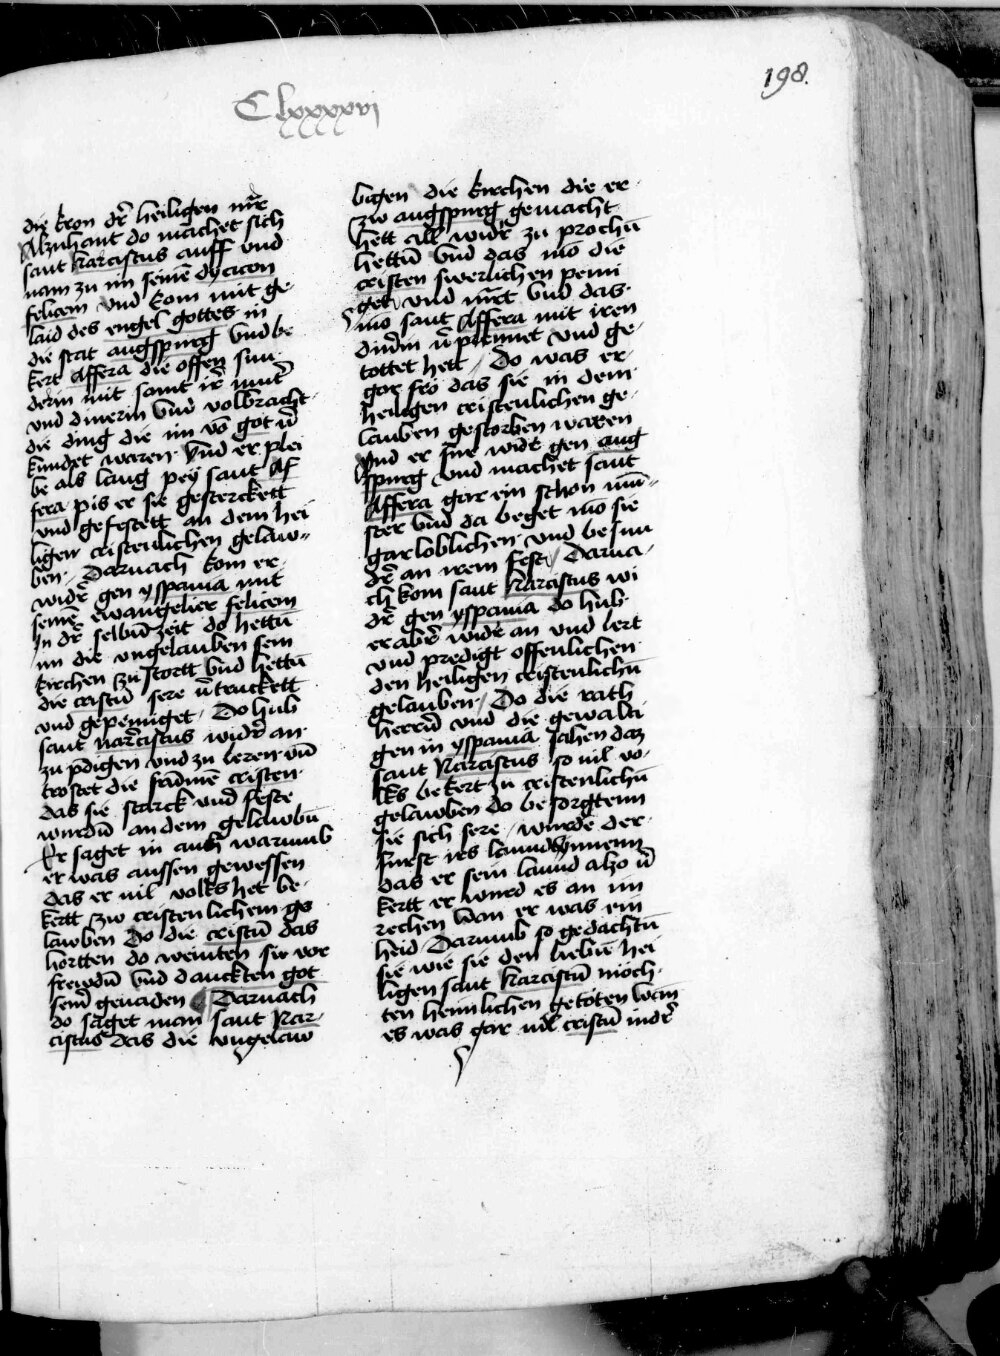 198.
Clxxxxvi
die kron dr̄ heiligen mr̄
Alzuhant do machet sich
sant Narcistus auff vnd
nam zu im seinē dyacon
felicem vnd kom mit ge¬
laid des engel gottes in
die stat augspurg vnd be
kert Affera die offen sun¬
derin mit samt ir̄ mut̄
vnd dinerin vnd volbracht
die ding die im vō got v̄
kundet waren. Vnd er plei
be als lang pey sant Af
fera pis er sie gesterckett
vnd gefestett an dem hei
ligen cristenlichen gelaw¬
ben. Darnach kom er
widr̄ gen yspania mit
seinē ewangelier felicem
In dr̄ selbn̄ zeit do hettn̄
im die vngelauben sein
kirchen zu stortt vnd hettn̄
die cristn̄ sere v̄truckett
vnd gepeiniget. Do hub
sant narcistus widr̄ an
zu p̄digen vnd zu leren vn̄
trostet die cristen
das sie starck vnd feste
wurdn̄ an dem gelawbn̄
Er saget in auch warumb
er was aussen gewessen
das er vil volks het be¬
kertt zw cristenlichem ge
lawben Do die cristn̄ das
hortten do weinten sie vor
frewdn̄ vnd danckten got
seinr̄ genaden Darnach
do saget man sant Nar¬
cistus das die vngelaw
bigen die kirchen die er
zw augspurg gemacht
hett all widr̄ zu prochn̄
hettn̄ vnd das mō die
cristen swerlichen peini
get vnd mr̄t vnd das
mō sant Affera mit iren
dirn̄ v̄prennet vnd ge¬
tottet hett. Do was er
gar fro das sie in dem
heiligen cristenlichen ge¬
lauben gestorben waren
Vnd er fur widr̄ gen aug
spurg vnd machet sant
Affera gar ein schon mun¬
ster vnd da beget mō sie
gar loblichen vnd besun
dr̄ an irem fest. Darna¬
ch kom sant Narcistus wi
dr̄ gen yspania do hub
er abr̄ widr̄ an vnd lert
vnd predigt offenlichen
den heiligen cristenlichn̄
gelauben. Do die rath
herrn̄ vnd die gewalti
gen in yspania sahen daz
sant Narcistus so vil vo¬
lks bekert zu cristenlichn̄
gelawben do besorgtenn
sie sich sere wurde der
furst irs lannd ynnenn
das er sein lannd also v̄
kertt er wurd es an im
rechen wan er was ein
heid. Darumb so gedachtn̄
sie wie sie den liebn̄ hei
ligen sant Narcistn̄ moch¬
ten heimlichen getoten wan
es was gar vil cristn̄ indr̄